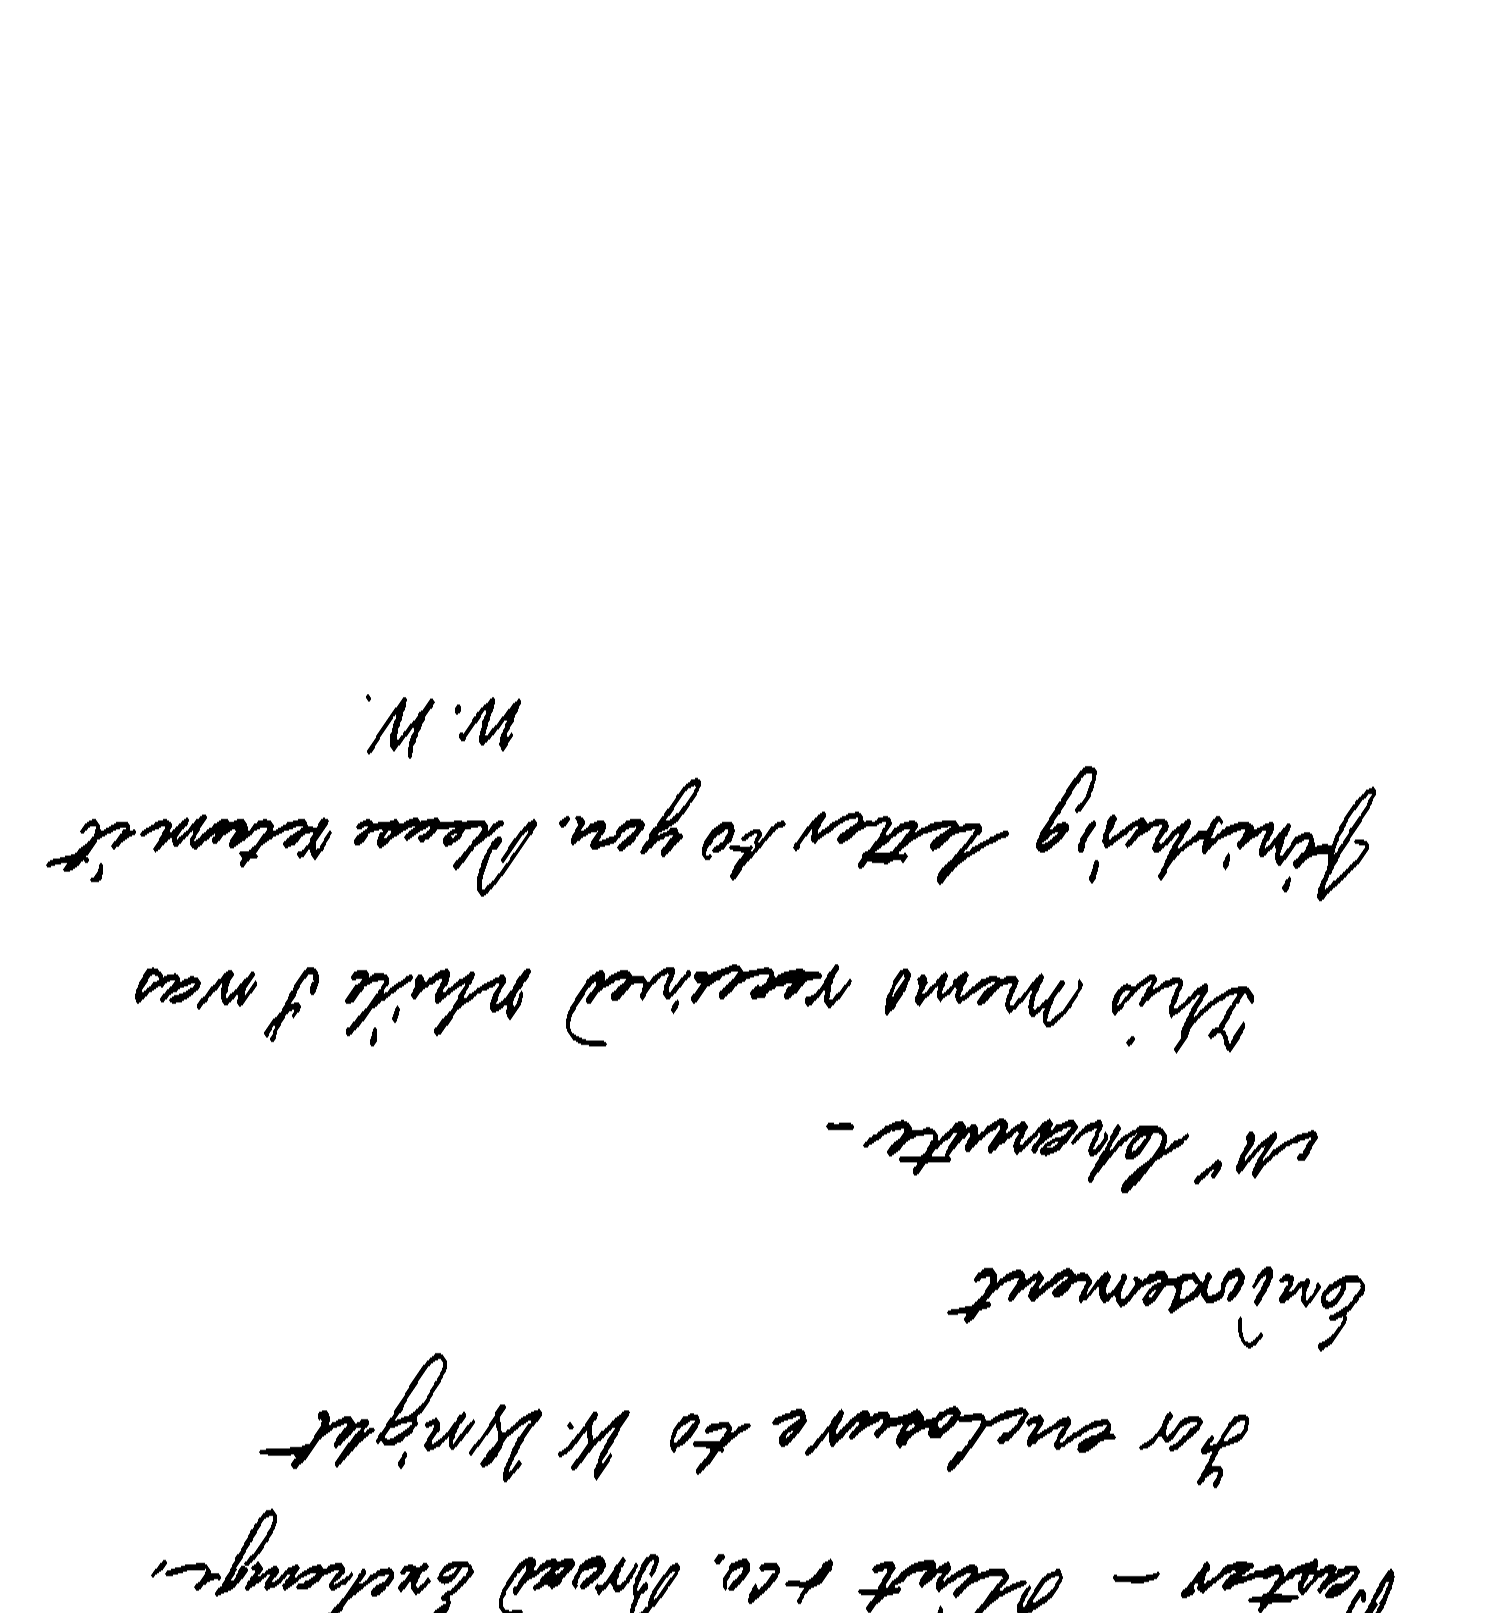 Paster – Flint & Co. Broad Exchange,
For enclosure to W. Wright
Endorsement
Mr Chanute –
This memo received while I was
finishing letter to you. Please return it
W. W.